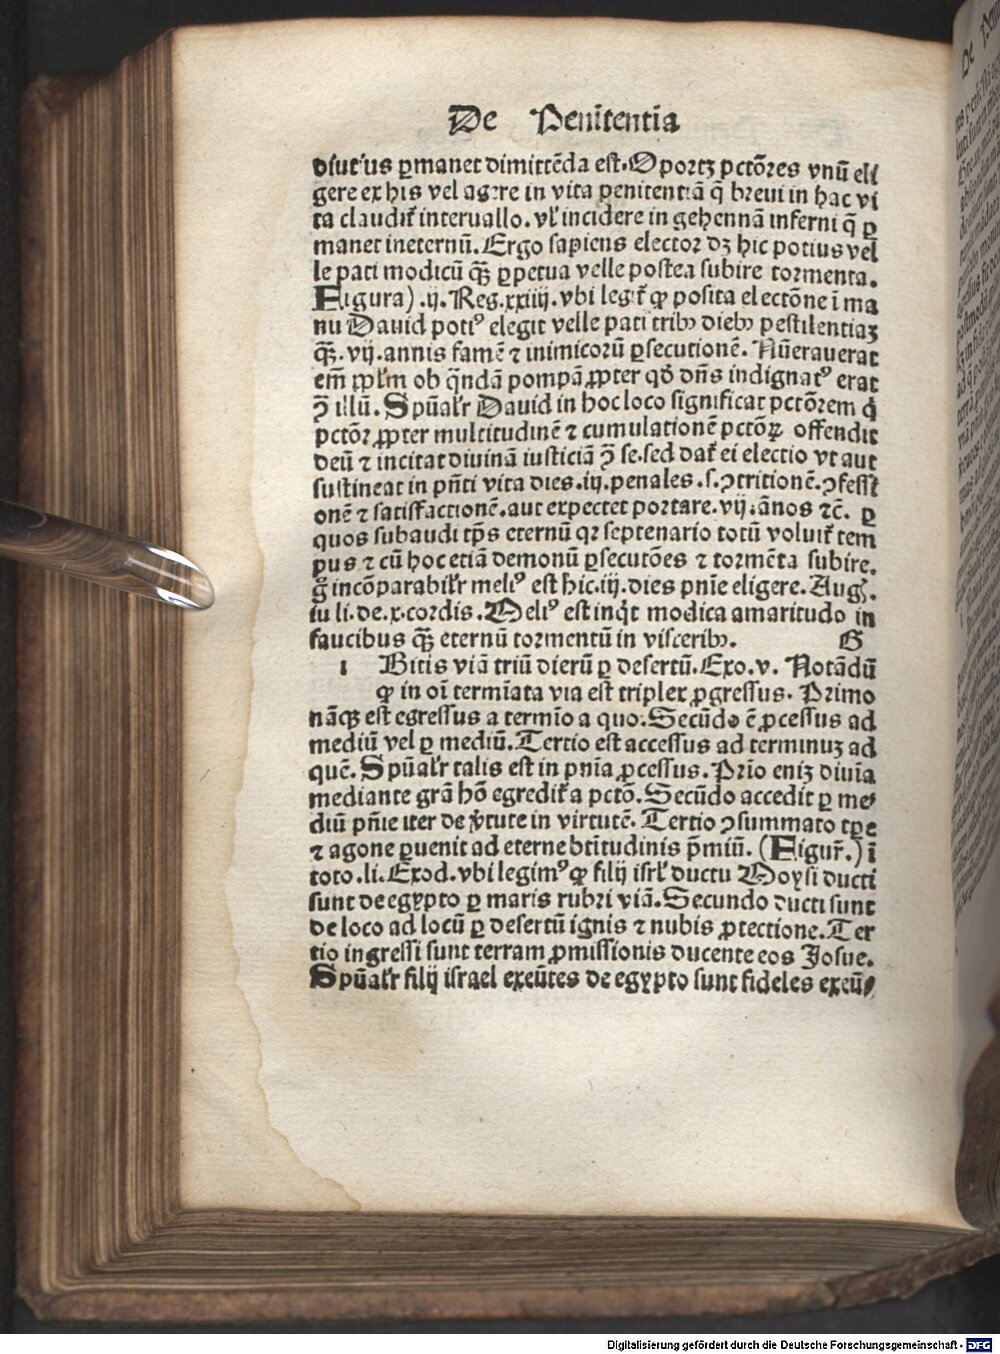 De Penitentia
diut'us ꝑmanet dimittẽda est. Oportꝫ pctõres vnũ eli
gere ex his vel agere in vita penitentiã q̃ breui in hac vi
ta claudit᷑ interuallo. vl' incidere in gehennã inferni q̃ ꝑ
manet ineternũ. Ergo sapiens elector dꝫ hic potius vel
le pati modicũ q̃ꝫ ꝑpetua velle postea subire tormenta.
Figura) .ij. Reg. xxiiij. vbi legit᷑ ꝙ posita electõne ĩ ma
nu Dauid potiꝰ elegit velle pati tribꝫ diebꝫ pestilentiaꝫ
q̃ꝫ. vij. annis famẽ ⁊ inimicorũ ꝑsecutionẽ. Nũerauerat
em̃ ppl'm ob q̃ndã pompã ꝓpter qđ dñs indignatꝰ erat
ꝯ̃ illũ. Spũal'r Dauid in hoc loco significat pctõrem q̇
pctõꝝ ꝓpter multitudinẽ ⁊ cumulationẽ pctõꝝ offendit
deũ ⁊ incitat diuinã iusticiã ꝯ̃ se. sed dat᷑ ei electio vt aut
sustineat in pñti vita dies .iij. penales .s. ꝯtritionẽ. ꝯfessi
onẽ ⁊ satisfactionẽ. aut expectet portare. vij. ãnos ⁊c̃. ꝑ
quos subaudi tp̃s eternũ qꝛ septenario totũ voluit᷑ tem
pus ⁊ cũ hoc etiã demonũ ꝑsecutões ⁊ tormẽta subire.
g̊ incõparabil'r meliꝰ est hic. iij. dies pnĩe eligere. Aug̃.
in li. de. x. cordis. Meliꝰ est inq̇t modica amaritudo in
faucibus q̃ꝫ eternũ tormentũ in visceribꝫ. G
i Bitis viã triũ dierũ ꝑ desertũ. Exo. v. Notãdũ
ꝙ in oĩ termĩata via est triplex ꝓgressus. Primo
nãqꝫ est egressus a termĩo a quo. Secũdo ẽ ꝓcessus ad
mediũ vel ꝑ mediũ. Tertio est accessus ad terminuꝫ ad
quẽ. Spũal'r talis est in pnĩa ꝓcessus. Prĩo eniꝫ diuĩa
mediante grã hõ egredit᷑ a pctõ. Secũdo accedit ꝑ me⸗
diũ pnĩe iter de v̓tute in virtutẽ. Tertio ꝯsummato tpĕ
⁊ agone ꝑuenit ad eterne btĩtudinis p̃miũ. (Figur̃.) ĩ
toto. li. Exod. vbi legimꝰ ꝙ filij isrl' ductu Moysi ducti
sunt de egypto ꝑ maris rubri viã. Secundo ducti sunt
de loco ad locũ ꝑ desertũ ignis ⁊ nubis ꝓtectione. Ter
tio ingressi sunt terram ꝓmissionis ducente eos Josue.
Spũal'r filij israel exeũtes de egypto sunt fideles exeũ⸗
Digitalisierung gefördert durch die Deutsche Forschungsgemeinschaft - DFG